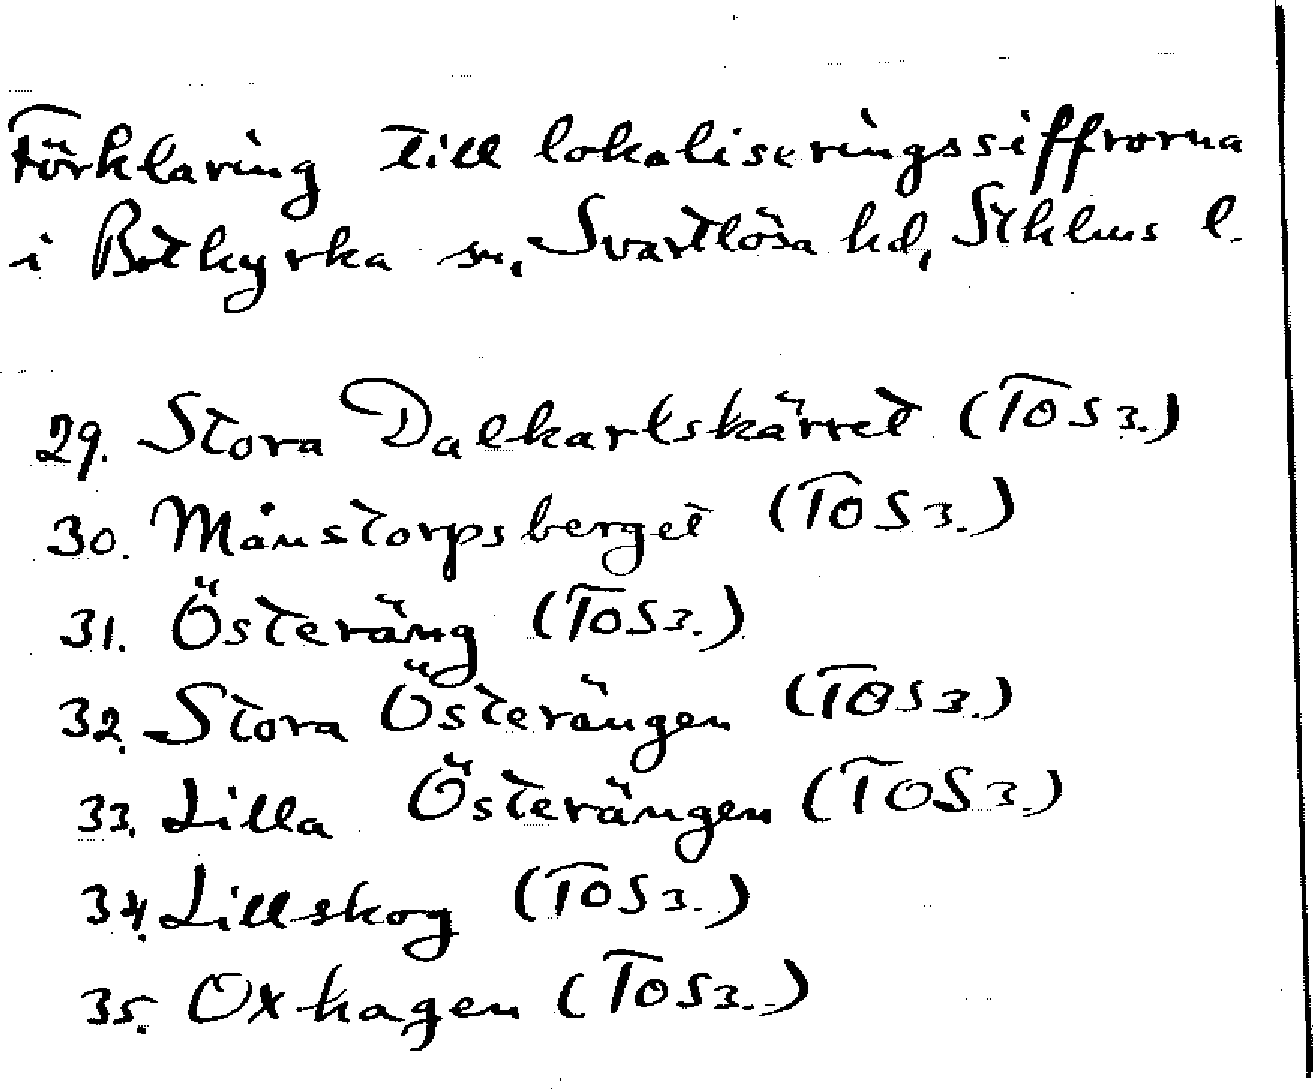 Förklaring till lokaliseringssiffrorna
i Botkyrka sn, Svartlösa hd, Sthlms l.
29. Stora Dalkarlskärret (TOS3.)
30. Månstorpsberget (TOS3.)
31. Österäng (TOS3.)
32. Stora Österängen (TOS3.)
33. Lilla Österängen (TOS3.)
34. Lillskog (TOS3.)
35. Oxhagen (TOS3.)